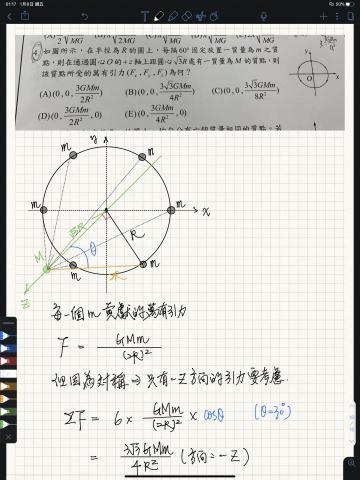 01:17 1月8日 週五
(A) 2√MG
√MG
2√MG
MG
4. 如圖所示，在半徑為R的圓上，每隔60°固定放置一質量為m之質
點，則在通過圓心O的+z軸上距圓心√3R處有一質量為M的質點，則
該質點所受的萬有引力(Fx, Fy, Fz)為何？
(A)(0, 0, 3GMm/2R²) (B)(0, 0, 3√3GMm/4R²) (C)(0, 0, 3√3GMm/8R²)
(D)(0, 3GMm/2R², 0) (E)(0, 3GMm/4R², 0)
y
m m
m m
x
√3R
R
M θ
m m
2R
Z
每一個m貢獻的萬有引力
F = GMm/(2R)²
但因為對稱 ⇒ 只有-Z方向的引力要考慮.
ΣF = 6 × GMm/(2R)² × cosθ (θ=30°)
= 3√3GMm/4R² (方向: -Z)